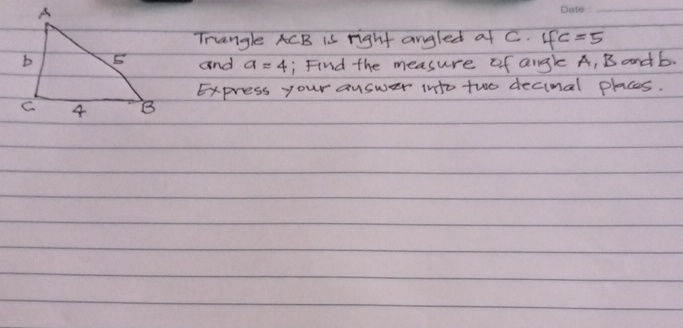 Date:
A
Triangle ACB is right angled at C. if c=5
b
5
and a=4; Find the measure of angle A, B and b.
Express your answer into two decimal places.
C
4
B